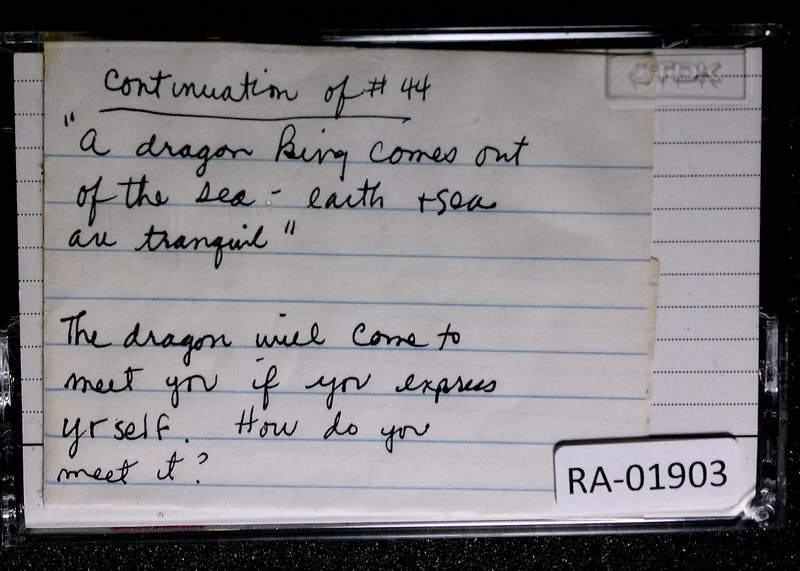 Continuation of # 44
"A dragon King comes out
of the sea - earth + sea
are tranquil"
The dragon will come to
meet you if you express
yrself. How do you
meet it?
TDK
RA-01903